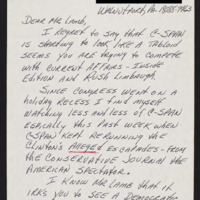 WALNUTPORT, PA. 18088-9763
DEAR MR LAMB,
I REGRET TO SAY THAT C-SPAN
IS STARTING TO LOOK LIKE A TABLOID
SEEMS YOU ARE TRYING TO COMPETE
WITH CURRENT AFFAIRS - INSIDE
EDITION AND RUSH LIMBAUGH.
SINCE CONGRESS WENT ON A
HOLIDAY RECESS I FIND MYSELF
WATCHING LESS AND LESS OF C-SPAN
ESPICALLY THIS PAST WEEK WHEN
CSPAN KEPT RERUNNING THE
CLINTON'S ALLEGED ESCAPADES - FROM
THE CONSERVATIVE JOURNAL THE
AMERICAN SPECTATOR.
I KNOW MR LAMB THAT IT
IRKS YOU TO SEE A DEMOCRATIC